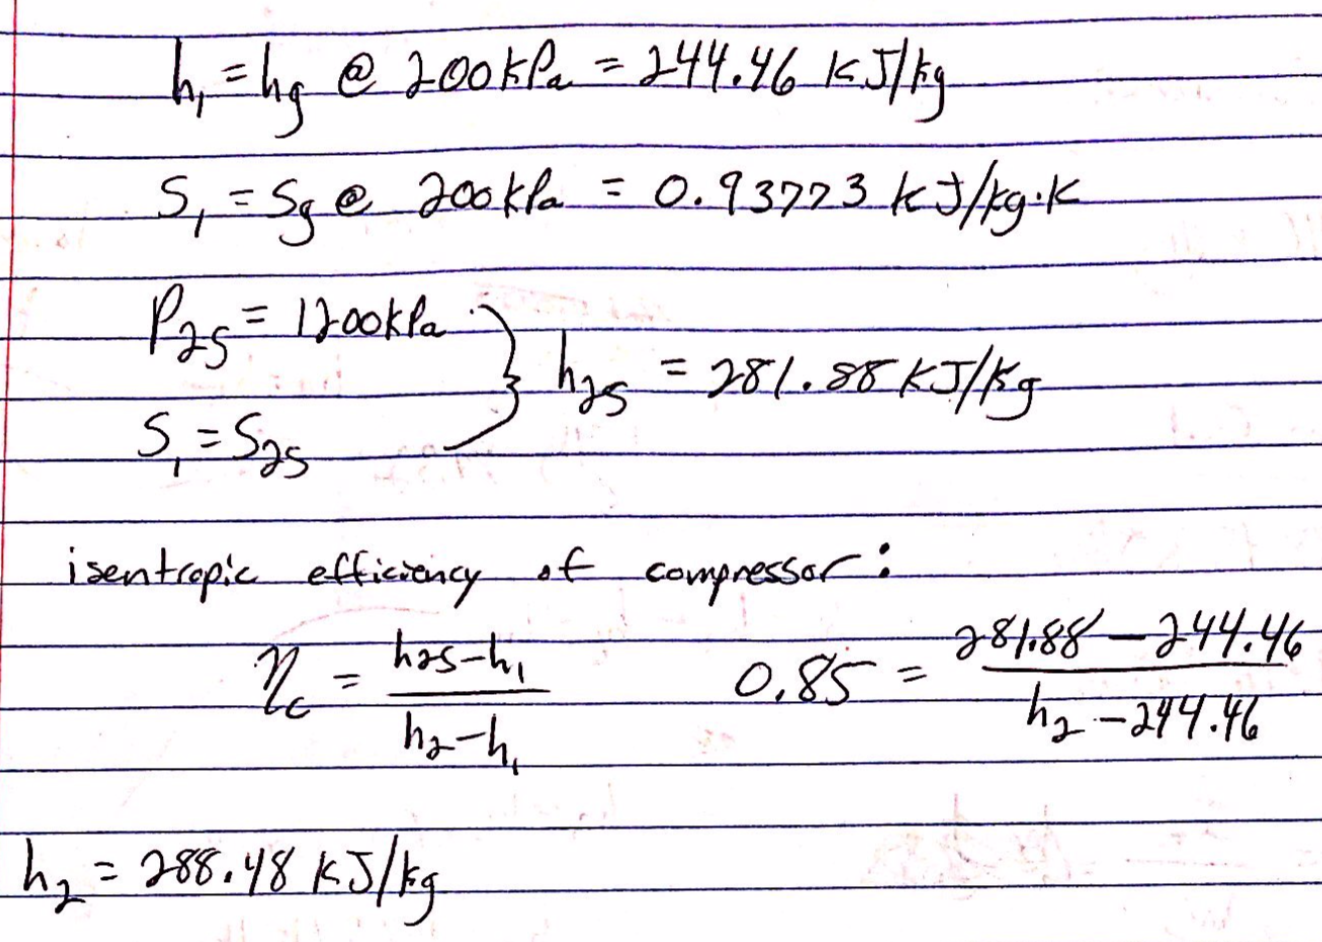 h₁ = hg @ 200kPa = 244.46 kJ/kg
S₁ = Sg @ 200kPa = 0.93773 kJ/kg·K
P₂s = 1200kPa
S₁ = S₂s } h₂s = 281.88 kJ/kg
isentropic efficiency of compressor:
ηc = (h₂s-h₁)/(h₂-h₁) 0.85 = (281.88 - 244.46)/(h₂ - 244.46)
h₂ = 288.48 kJ/kg